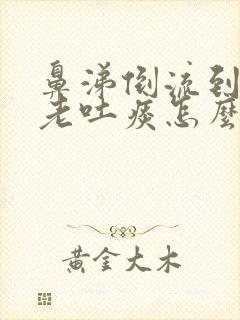 鼻涕倒流到
老吐痰怎麼
黄金大木